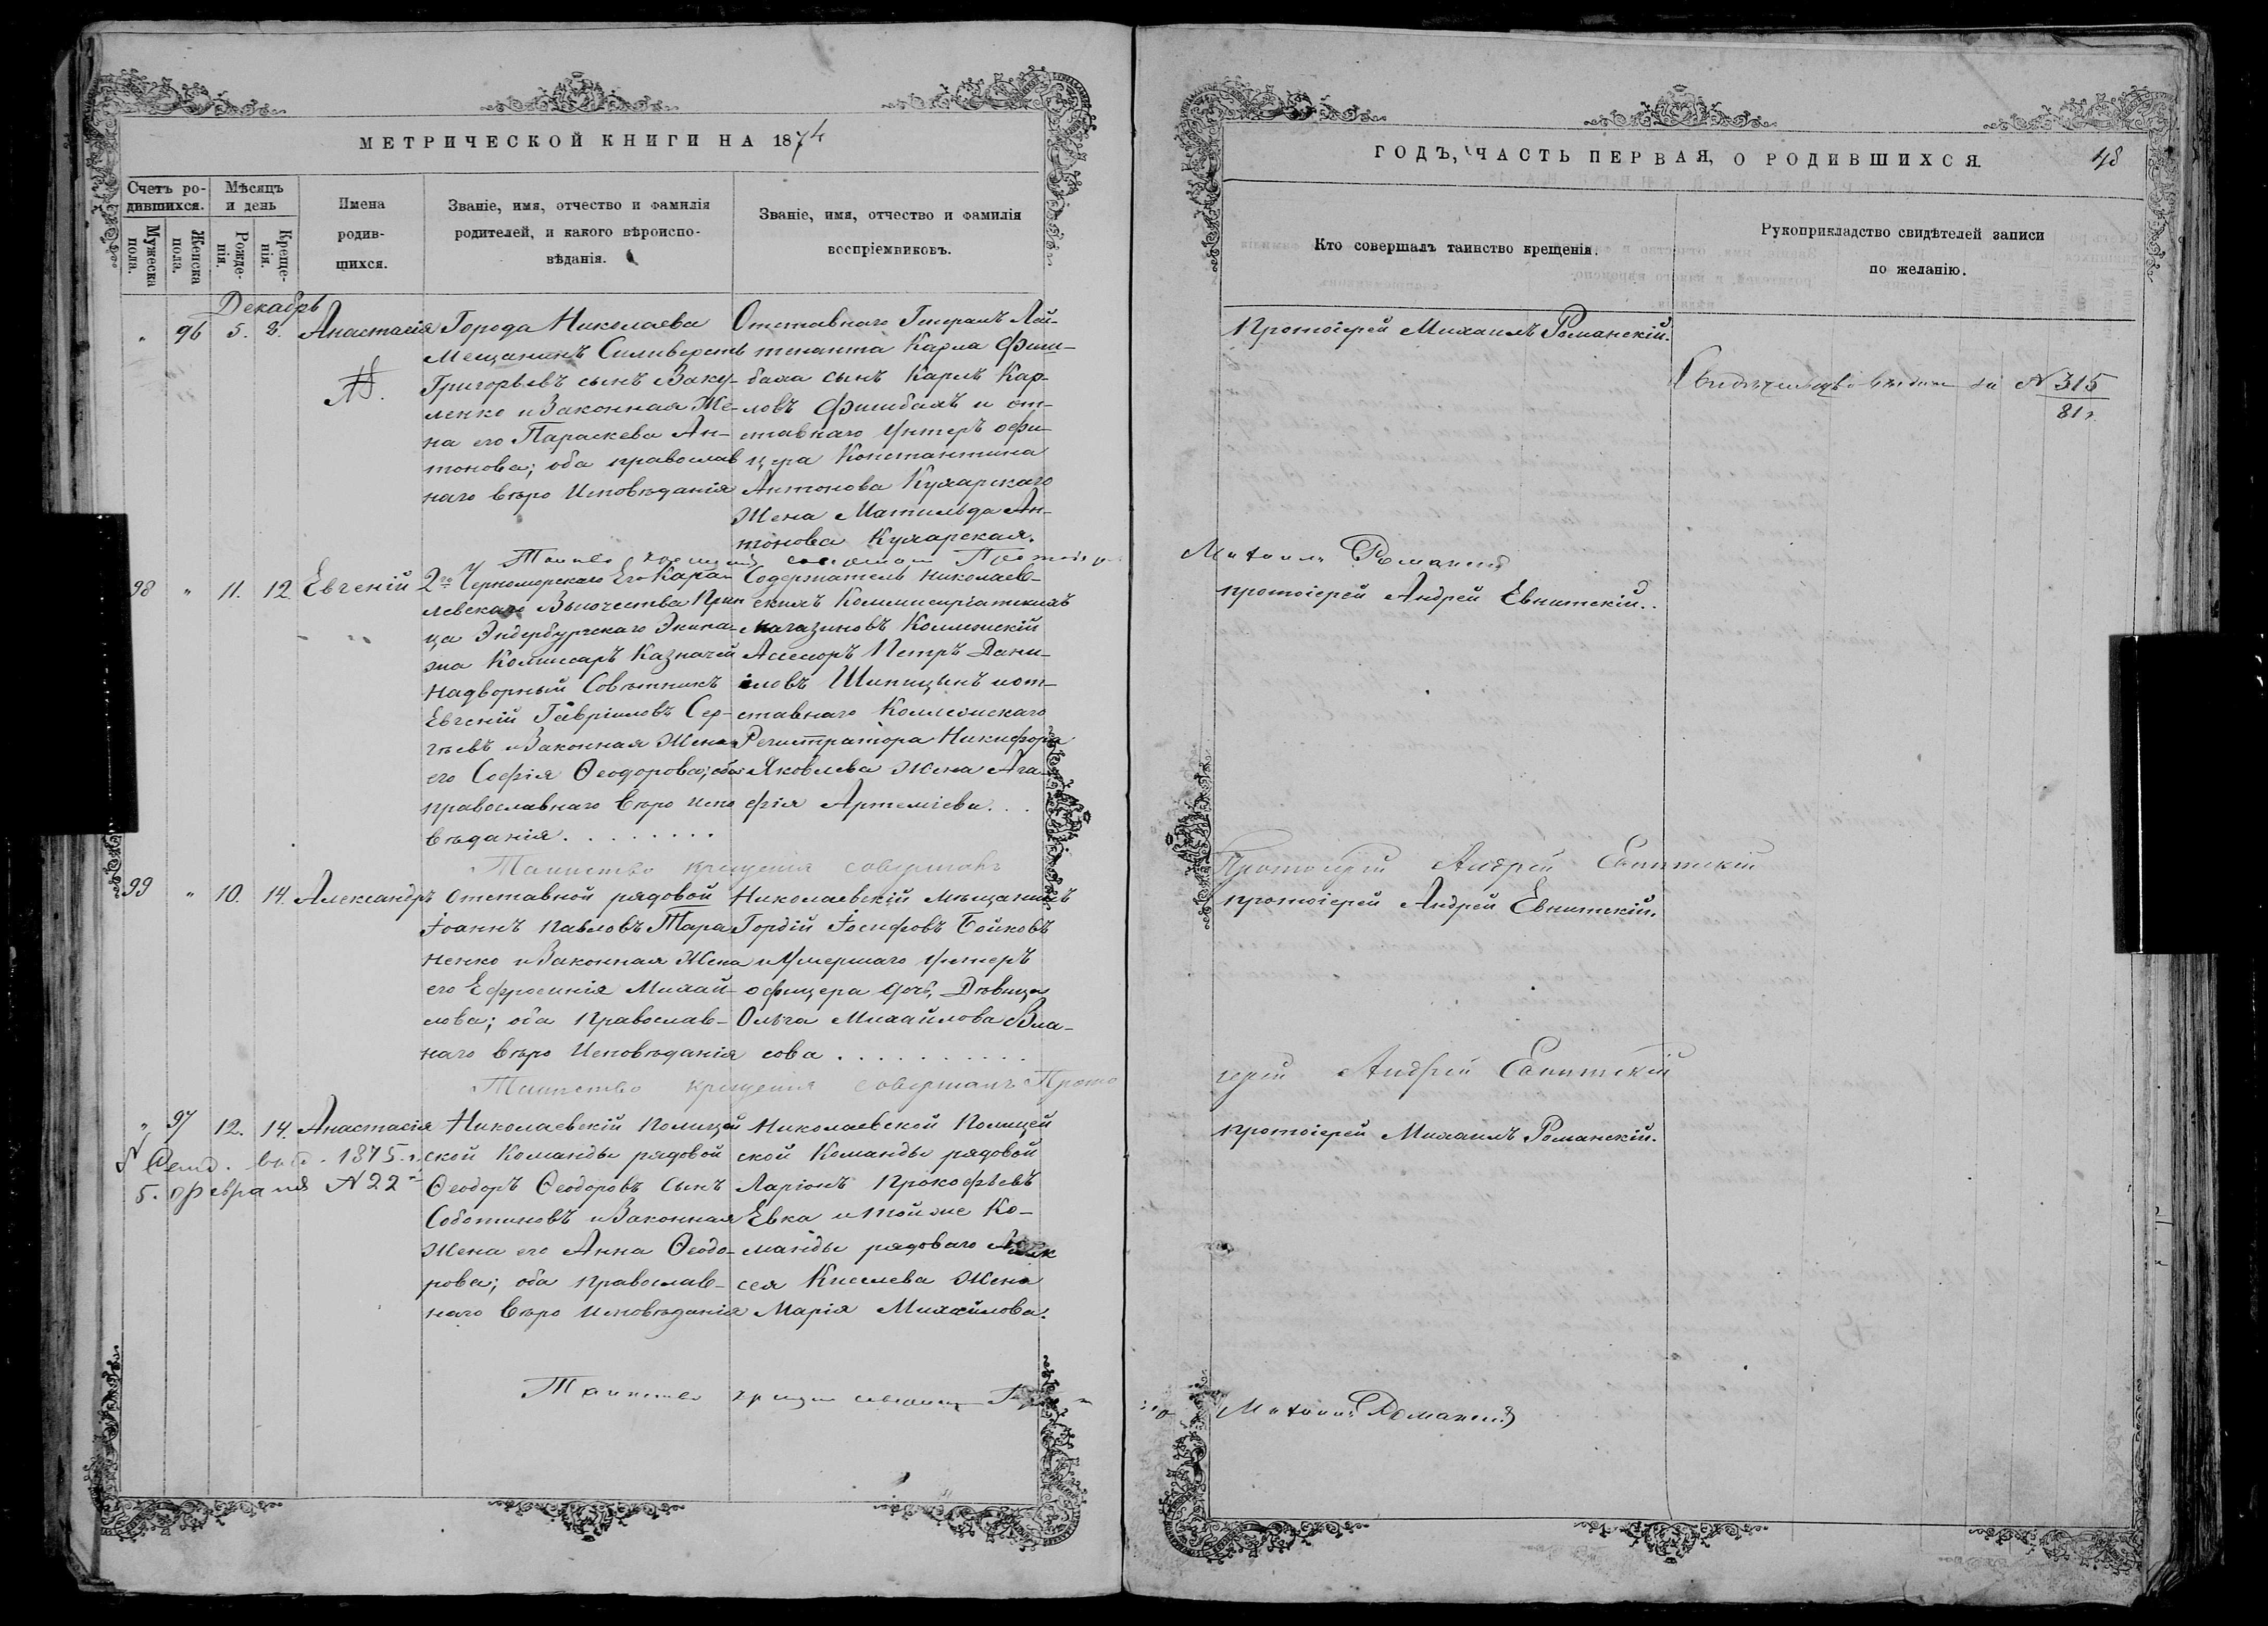 МЕТРИЧЕСКОЙ КНИГИ НА 1874
Счетъ ро-
дившихся.
Мужеска пола.
Женска пола.
Мѣсяцъ
и день
Рожде-
нія.
Креще-
нія.
Имена
родив-
шихся.
Званіе, имя, отчество и фамилія
родителей, и какого вѣроиспо-
вѣданія.
Званіе, имя, отчество и фамилія
воспріемниковъ.
Декабрь
" 96 5. 8. Анастасія
Города Николаева
Мещанинъ Сильверстъ
Григорьевъ сынъ Ваку-
ленко и Законная Же-
на его Параскева Ан-
тонова; оба православ
наго вѣро Исповѣданія
Отставнаго Генералъ Лей-
тенанта Карла Фиш-
баха сынъ Карлъ Кар-
ловъ Фишбахъ и от-
ставнаго Унтеръ офи-
цера Константина
Антонова Кухарскаго
Жена Матильда Ан-
тонова Кухарская.
98 " 11. 12. Евгеній
2го Черноморскаго Его Коро-
левскаго Высочества Прин
ца Эндербургскаго Экипа-
жа Комиссаръ Казначей
Надворный Совѣтникъ
Евгеній Гавріиловъ Сер-
гѣевъ и Законная Жена
его Софія Ѳеодорова; оба
православнаго вѣро испо
вѣданія. . . . . . . .
Содержатель Николаев-
скихъ Коммисиріатскихъ
магазиновъ Коллежскій
Асессоръ Петръ Дани-
иловъ Шипицынъ и от-
ставнаго Коллежскаго
Регистратора Никифора
Яковлева Жена Ага-
фія Артеміева. . .
Таинство крещенія совершалъ
99 " 10. 14. Александръ
Отставной рядовой
Іоаннъ Павловъ Тара
ненко и Законная Жена
его Ефросинія Михай-
лова; оба Православ-
наго вѣро Исповѣданія
Николаевскій мѣщанинъ
Гордій Іосифовъ Бойковъ
и Умершаго унтеръ
офицера дочь, Дѣвица
Ольга Михайлова Вла-
сова . . . . . . . . . .
Таинство крещенія совершалъ Прото
" 97 12. 14. Анастасія
выд. 1875 г.
5. февраля N 22
Николаевскій Полицей
ской Команды рядовой
Ѳеодоръ Ѳеодоровъ сынъ
Соботиновъ и Законная
Жена его Анна Ѳеодо-
рова; оба Православ-
наго вѣро исповѣданія
Николаевской Полицей
ской Команды рядовой
Ларіонъ Прокофьевъ
Евка и той же Ко-
манды рядоваго Алек
сея Киселева Жена
Марія Михайлова.
ГОДЪ, ЧАСТЬ ПЕРВАЯ, О РОДИВШИХСЯ.
48
Кто совершалъ таинство крещенія.
Рукоприкладство свидѣтелей записи
по желанію.
Протоіерей Михаилъ Романскій.
Свидѣтельство выдано за N 315
81 г.
Михаилъ Романскій
протоіерей Андрей Евнитскій..
Протоіерей Андрей Евнитскій
протоіерей Андрей Евнитскій.
іерей Андрей Евнитскій
протоіерей Михаилъ Романскій.
Михаилъ Романскій